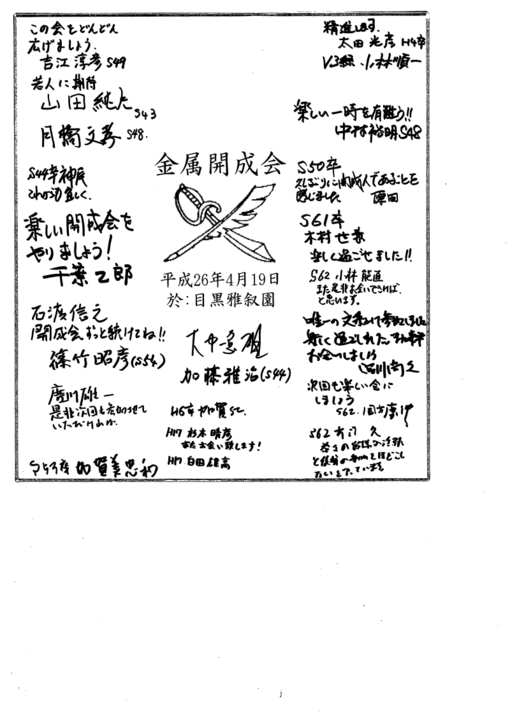 この会をどんどん
広げましょう.
吉江淳彦 S49
若人に期待
山田純夫
S43
月橋文孝 S48.
S44卒神辰
これからも宜しく.
楽しい開成会を
やりましょう!
千葉乙郎
石渡信之
開成会ずっと続けてね!!
篠竹昭彦(S54)
是非次回も参加させて
いただければ.
S53卒 加賀美忠和
金属開成会
平成26年4月19日
於:目黒雅叙園
加藤雅治(S44)
H6卒 加賀
H17 杉本晴彦
またお会い致します!
H17 白田雄高
精進します.
太田光彦 H4卒
小林順一
楽しい一時を有難う!!
中村裕明 S48
S50卒
久しぶりに開成人であることを
感じました 原田
S61卒
木村
楽しく過ごせました!!
S62 小林能直
また是非お会いできれば、
と思います。
唯一の文系
楽しく
お会いしましょう
次回も楽しい会に
しましょう
S62.
S62